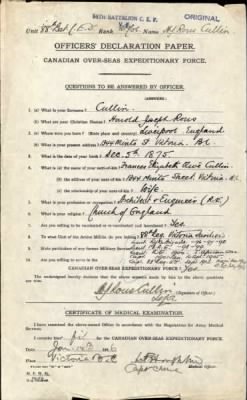 88TH BATTALION C.E.F.
ORIGINAL
Unit 88th Batt C.E.F. Rank Major Name H J Rous Cullin
OFFICERS' DECLARATION PAPER.
CANADIAN OVER-SEAS EXPEDITIONARY FORCE.
QUESTIONS TO BE ANSWERED BY OFFICER.
(ANSWERS)
1. (a) What is your Surname? Cullin
(b) What are your Christian Names? Harold Joseph Rous
2. Where were you born? (State place and country) Liverpool England
3. What is your present address? 1844 Street Victoria B.C.
4. What is the date of your birth? Dec. 5th 1875
5. (a) What is the name of your next-of-kin? Elizabeth Rous Cullin
(b) What is the address of your next-of-kin? 1844 Street Victoria B.C.
(c) What is the relationship of your next-of-kin? Wife
6. What is your profession or occupation? Architect & Engineer
7. What is your religion? Church of England
8. Are you willing to be vaccinated or re-vaccinated and inoculated? Yes.
9. To what Unit of the Active Militia do you belong? 88th Reg. Victoria Fusiliers
10. State particulars of any former Military Service.
11. Are you willing to serve in the
CANADIAN OVER-SEAS EXPEDITIONARY FORCE? Yes
The undersigned hereby declares that the above answers made by him to the above questions are true.
H J Rous Cullin (Signature of Officer)
Major
CERTIFICATE OF MEDICAL EXAMINATION.
I have examined the above-named Officer in accordance with the Regulations for Army Medical Services.
I consider him fit for the CANADIAN OVER-SEAS EXPEDITIONARY FORCE.
Date Jan 1916
Place Victoria B.C.
Medical Officer.